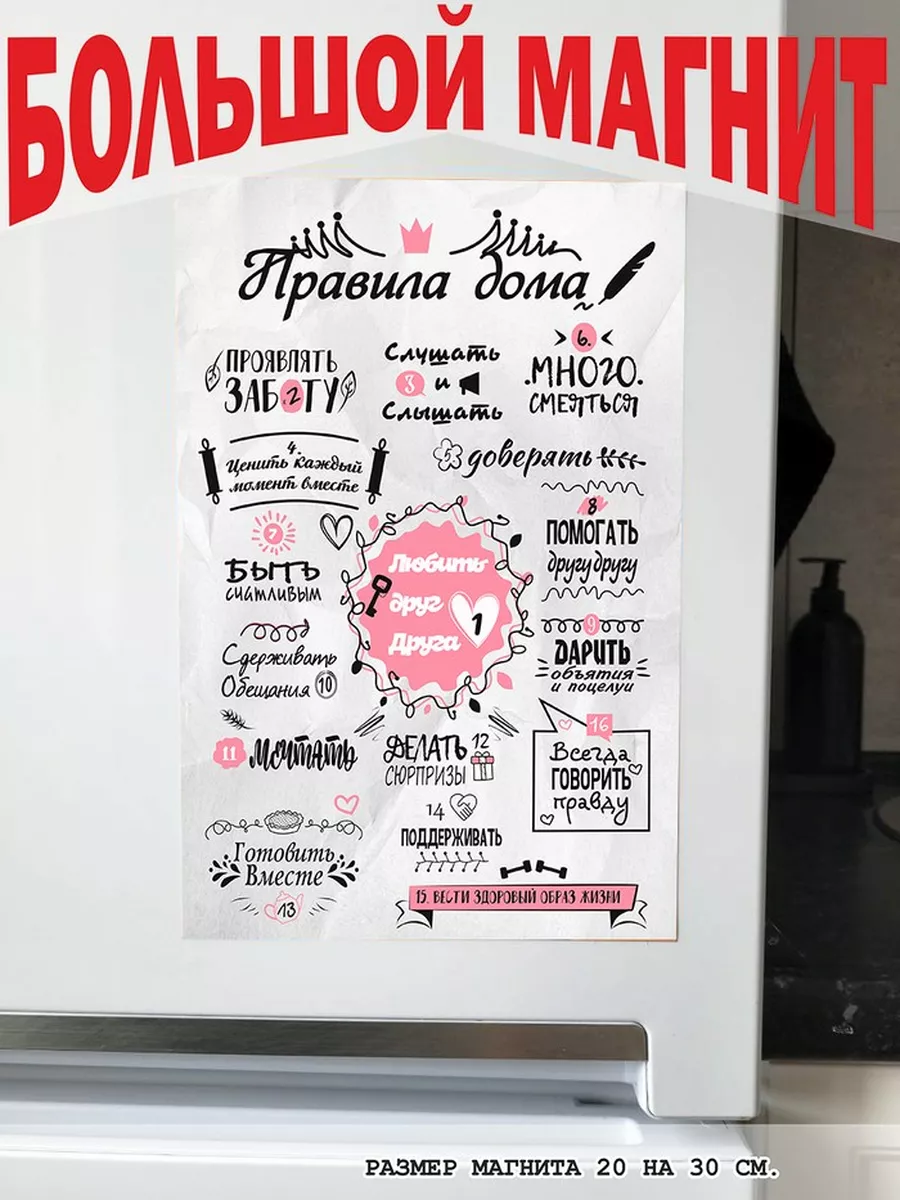 БОЛЬШОЙ МАГНИТ
Правила дома
ПРОЯВЛЯТЬ
ЗАБОТУ
2
Слушать
3 и
Слышать
6.
МНОГО
СМЕЯТЬСЯ
4.
Ценить каждый
момент вместе
5 доверять
7
БЫТЬ
СЧАСТЛИВЫМ
Любить
друг
Друга
1
8
ПОМОГАТЬ
другу другу
9
ДАРИТЬ
объятия
и поцелуи
Сдерживать
Обещания 10
11 Мечтать
ДЕЛАТЬ 12
СЮРПРИЗЫ
16
Всегда
ГОВОРИТЬ
правду
14
ПОДДЕРЖИВАТЬ
Готовить
Вместе
13
15. ВЕСТИ ЗДОРОВЫЙ ОБРАЗ ЖИЗНИ
РАЗМЕР МАГНИТА 20 НА 30 СМ.